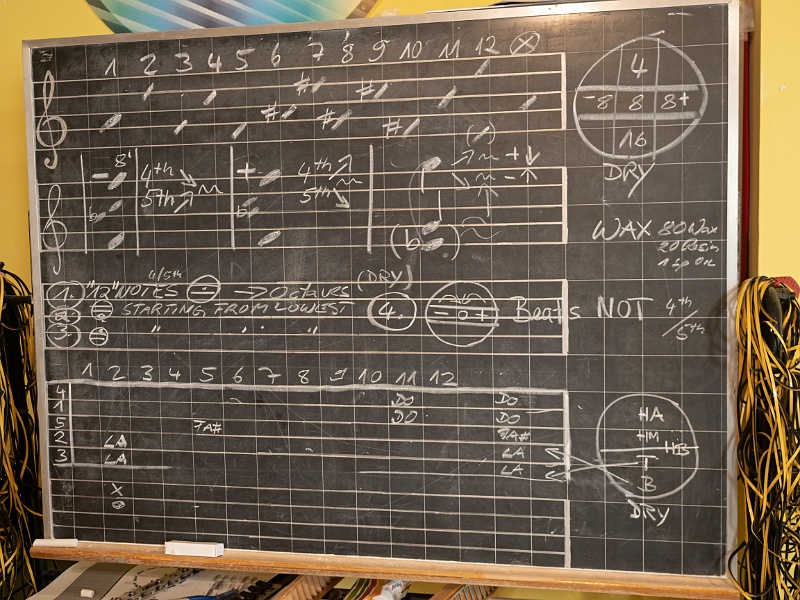 1 2 3 4 5 6 7 8 9 10 11 12 X
# # # # #
4
-8 8 8+
16
DRY
- 8' 4th ↘ + 4th ↗ ↗ + ↓
5th ↗ 5th ↘ ↘ - ↑
b b (b)
WAX 80 Wax
20 Rosin
4/5th
1. "12" NOTES → Octaves (DRY)
2. STARTING FROM LOWEST 4. - 0 + Beats NOT 4th/5th
3. " " "
1 2 3 4 5 6 7 8 9 10 11 12
4 DO DO
1 DO DO
5 FA# FA#
2 LA LA
3 LA LA
X
HA
HM
HB
T
B
DRY